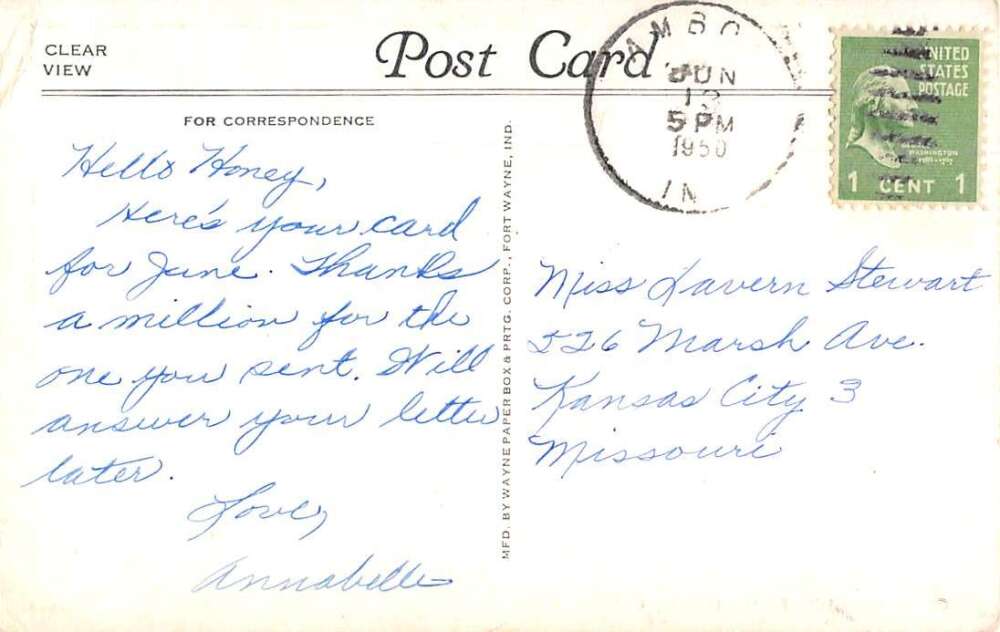 CLEAR
VIEW
Post Card
FOR CORRESPONDENCE
Hello Honey,
Here's your card
for June. Thanks
a million for the
one you sent. Will
answer your letter
later.
Love,
Annabelle
MFD. BY WAYNE PAPER BOX & PRTG. CORP., FORT WAYNE, IND.
AMBO
JUN
5 PM
1950
IN
UNITED
STATES
POSTAGE
WASHINGTON
1 CENT 1
Miss Lavern Stewart
526 Marsh Ave.
Kansas City 3
Missouri